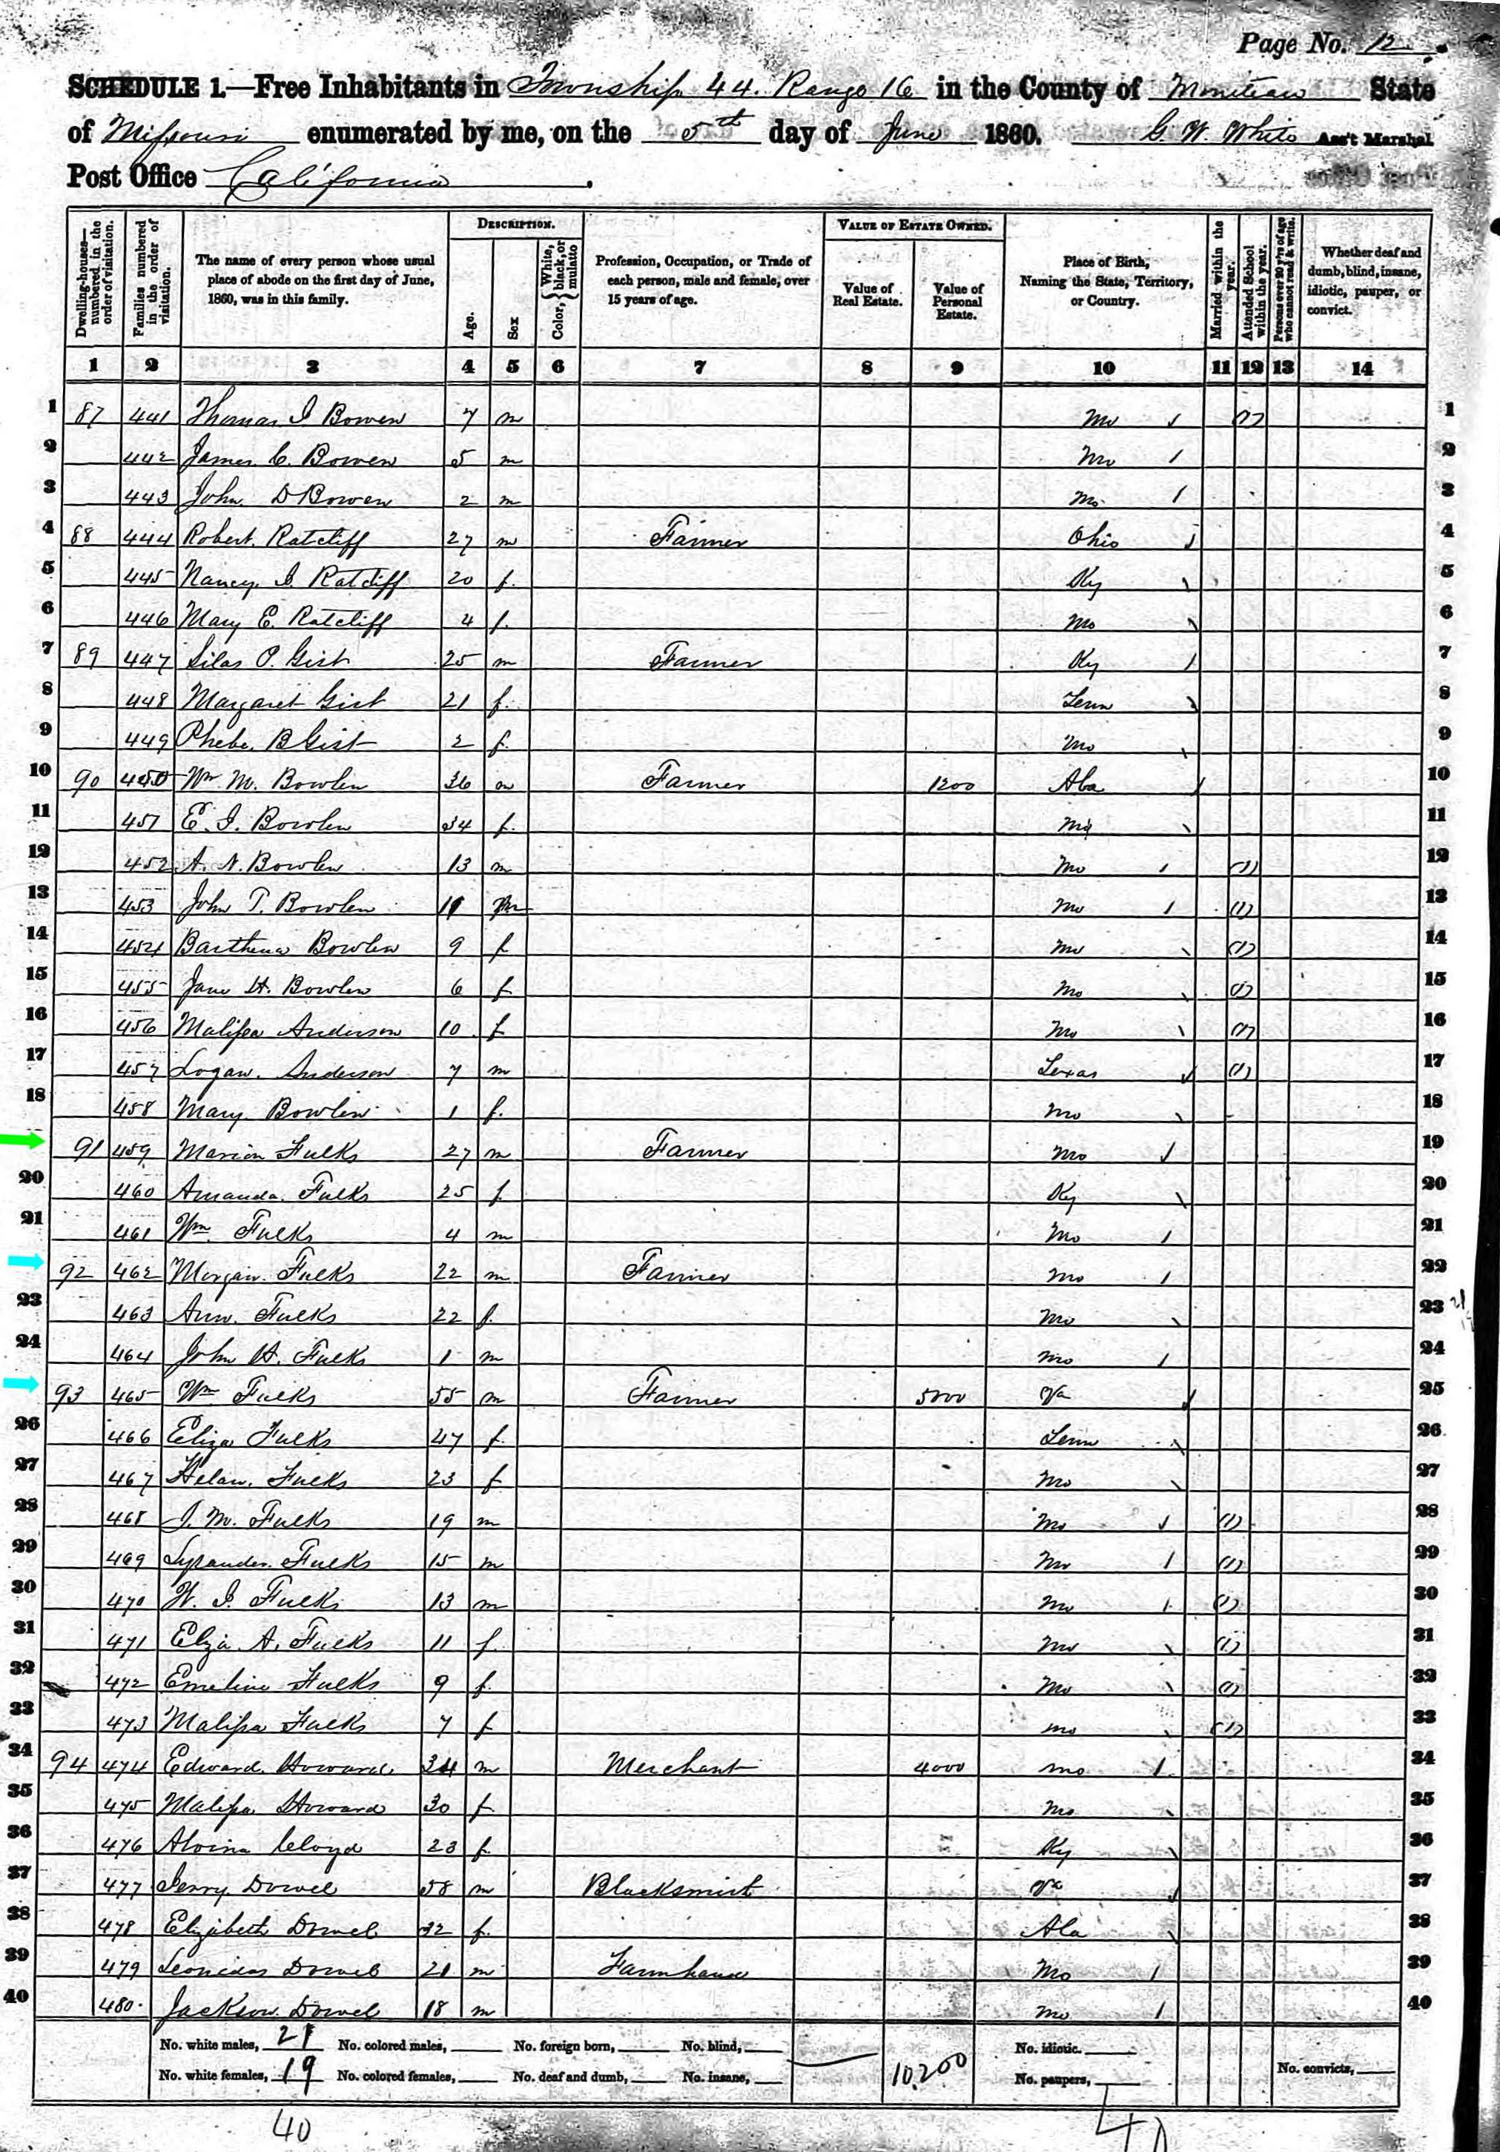 Page No. 12
SCHEDULE 1.—Free Inhabitants in Township 44. Range 16 in the County of Moniteau State
of Missouri enumerated by me, on the 5th day of June 1860. G. W. White Ass't Marshal
Post Office California
Dwelling-houses—numbered in the order of visitation. Families numbered in the order of visitation. The name of every person whose usual place of abode on the first day of June, 1860, was in this family. DESCRIPTION. Age. Sex Color, White, black, or mulatto Profession, Occupation, or Trade of each person, male and female, over 15 years of age. VALUE OF ESTATE OWNED. Value of Real Estate. Value of Personal Estate. Place of Birth, Naming the State, Territory, or Country. Married within the year. Attended School within the year. Persons over 20 y'rs of age who cannot read & write. Whether deaf and dumb, blind, insane, idiotic, pauper, or convict.
1 2 3 4 5 6 7 8 9 10 11 12 13 14
1 87 441 Thomas J Bowen 7 m Mo / (1) 1
2 442 James C. Bowen 5 m Mo / 2
3 443 John D Bowen 2 m Mo / 3
4 88 444 Robert Ratcliff 27 m Farmer Ohio 4
5 445 Nancy J. Ratcliff 20 f. Ky 5
6 446 Mary E. Ratcliff 4 f. Mo 6
7 89 447 Silas P. Gist 25 m Farmer Ky / 7
8 448 Margaret Gist 21 f. Tenn 8
9 449 Phebe B Gist 2 f. Mo 9
10 90 450 Wm M. Bowlen 36 m Farmer 1200 Ala 10
11 451 E. J. Bowlen 34 f. Mo 11
12 452 A. N. Bowlen 13 m Mo / (1) 12
13 453 John T. Bowlen 11 m Mo / (1) 13
14 454 Barthena Bowlen 9 f Mo (1) 14
15 455 Jane H. Bowlen 6 f Mo (1) 15
16 456 Malissa Anderson 10 f Mo (1) 16
17 457 Logan Anderson 7 m Texas (1) 17
18 458 Mary Bowlen 1 f. Mo 18
91 459 Marion Fulks 27 m Farmer Mo / 19
20 460 Amanda Fulks 25 f Ky 20
21 461 Wm Fulks 4 m Mo / 21
92 462 Morgan Fulks 22 m Farmer Mo / 22
23 463 Ann Fulks 22 f. Mo 23
24 464 John H. Fulks 1 m Mo / 24
93 465 Wm Fulks 55 m Farmer 5000 Va 25
26 466 Eliza Fulks 47 f. Tenn 26
27 467 Helan Fulks 23 f Mo 27
28 468 J. M. Fulks 19 m Mo (1) 28
29 469 Lysander Fulks 15 m Mo / (1) 29
30 470 W. J. Fulks 13 m Mo / (1) 30
31 471 Eliza A. Fulks 11 f Mo (1) 31
32 472 Emeline Fulks 9 f. Mo (1) 32
33 473 Malissa Fulks 7 f Mo (1) 33
34 94 474 Edward Howard 34 m Merchant 4000 Mo / 34
35 475 Malissa Howard 30 f Mo 35
36 476 Alvina Cloyd 23 f. Ky 36
37 477 Jerry Dowel 58 m Blacksmit Va 37
38 478 Elizabeth Dowel 32 f. Ala 38
39 479 Leonidas Dowel 21 m Farmhand Mo / 39
40 480 Jackson Dowel 18 m Mo / 40
No. white males, 21 No. colored males, No. foreign born, No. blind, No. idiotic.
No. white females, 19 No. colored females, No. deaf and dumb, No. insane, 10,200 No. paupers, No. convicts,
40 40